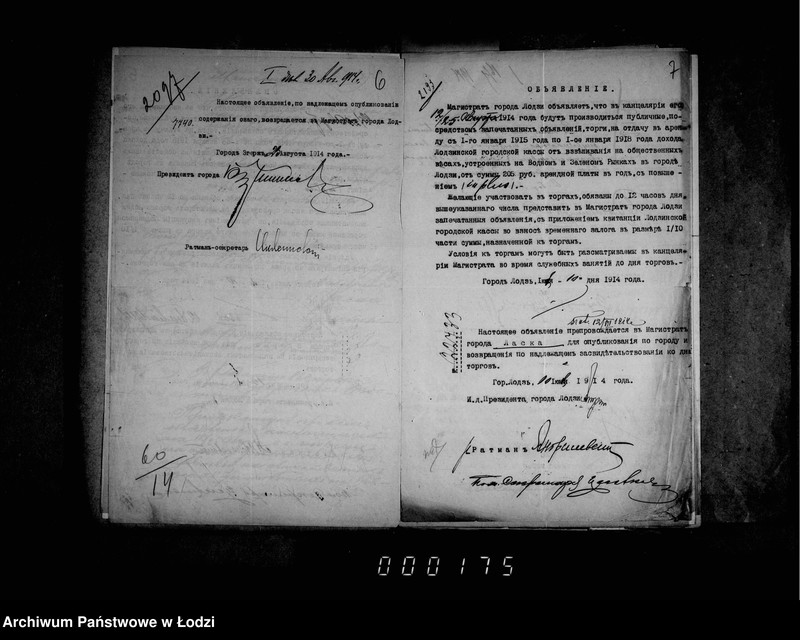 2097
I
1914 г.
6
Настоящее объявленіе, по надлежащемъ опубликованіи
7740.
содержанія онаго, возвращается въ Магистратъ города Лод-
зи.-
Города Згержъ, августа 1914 года.-
Президентъ города
Ратманъ-секретарь
60
14
7
2133
ОБЪЯВЛЕНІЕ.
Магистратъ города Лодзи объявляетъ, что въ канцеляріи его
12/25 Августа 1914 года будутъ производиться публичные, по-
средствомъ запечатанныхъ объявленій, торги, на отдачу въ арен-
ду съ 1-го января 1915 года по 1-ое января 1918 года дохода
Лодзинской городской кассы отъ взвѣшиванія на общественныхъ
вѣсахъ, устроенныхъ на Водномъ и Зеленомъ Рынкахъ въ городѣ
Лодзи, отъ суммы 205 руб. арендной платы въ годъ, съ повыше-
ніемъ (in plus).-
Желающіе участвовать въ торгахъ, обязаны до 12 часовъ дня
вышеуказаннаго числа представить въ Магистратъ города Лодзи
запечатанныя объявленія, съ приложеніемъ квитанціи Лодзинской
городской кассы во взносѣ временнаго залога въ размѣрѣ 1/10
части суммы, назначенной къ торгамъ.
Условія къ торгамъ могутъ быть разсматриваемы въ канцеля-
ріи Магистрата во время служебныхъ занятій до дня торговъ.-
Городъ Лодзь, 10 дня 1914 года.
Настоящее объявленіе препровождается въ Магистратъ
города Ласка для опубликованія по городу и
возвращенія по надлежащемъ засвидѣтельствованіи ко дню
торговъ.
Гор. Лодзь, 10 1914 года.
И.д. Президента города Лодзи
Ратманъ
Пом. Секретаря
000175
Archiwum Państwowe w Łodzi